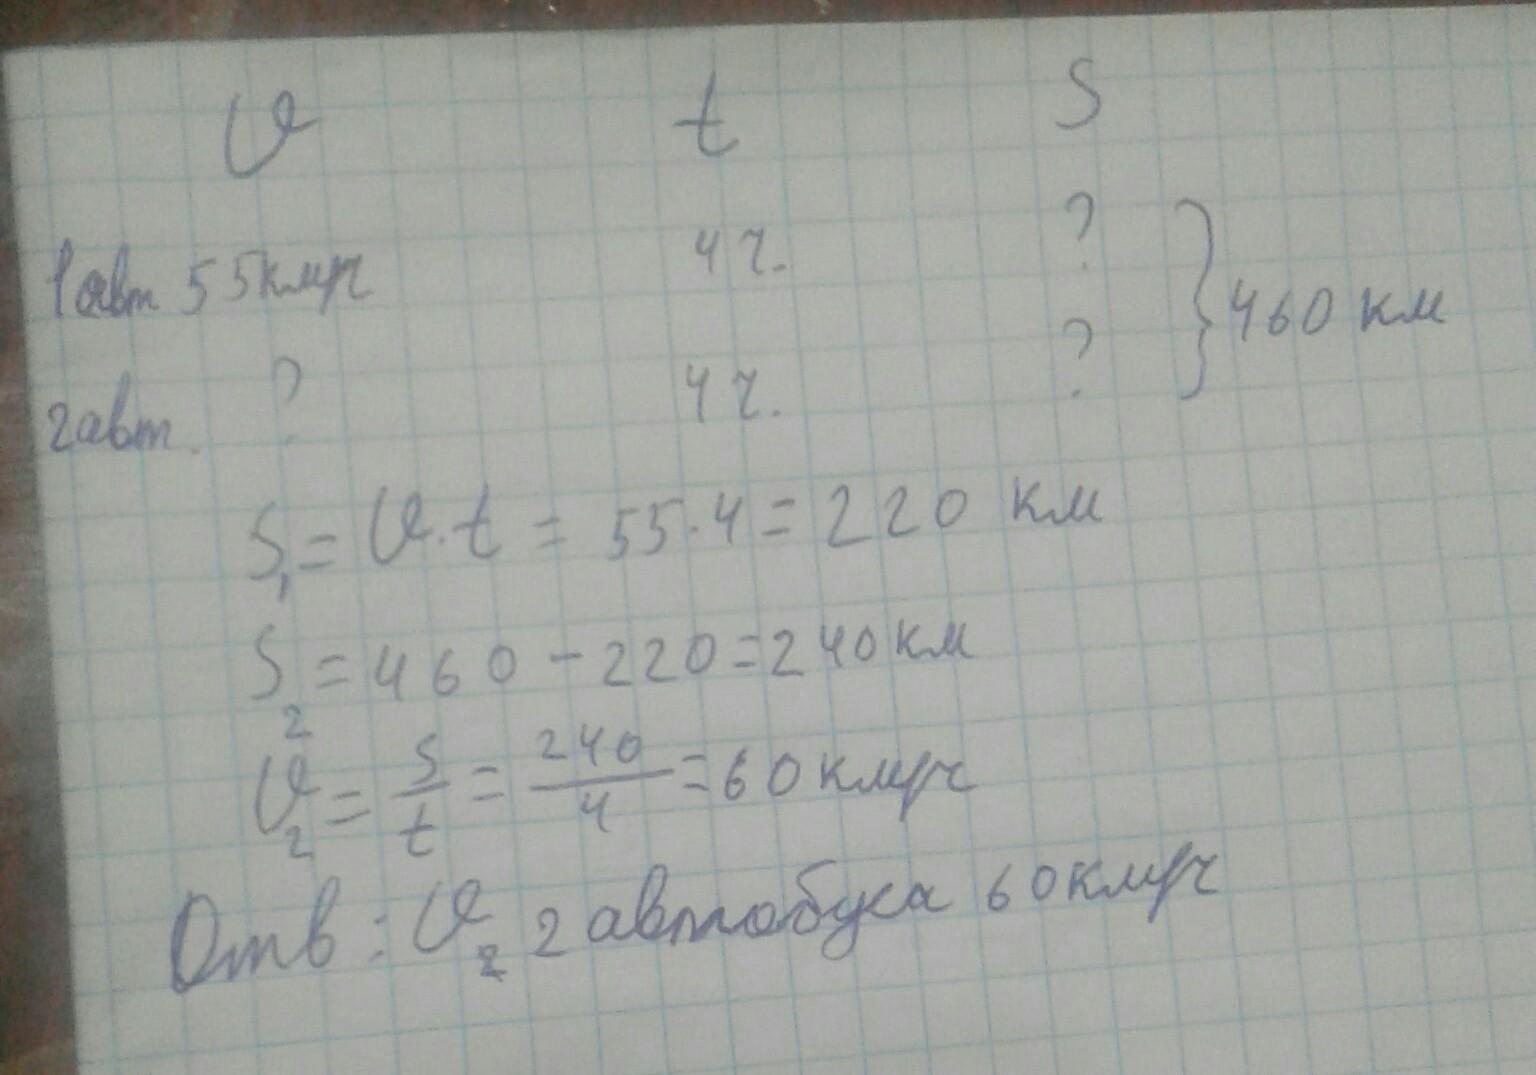 v t S
1 авт 55 км/ч 4 ч. ?
2 авт. ? 4 ч. ? } 460 км
S₁ = v · t = 55 · 4 = 220 км
S₂ = 460 - 220 = 240 км
v₂ = S/t = 240/4 = 60 км/ч
Отв: v₂ 2 автобуса 60 км/ч